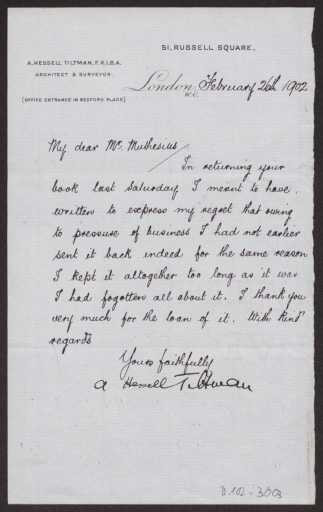 51, RUSSELL SQUARE.
A. HESSELL TILTMAN, F.R.I.B.A.
ARCHITECT & SURVEYOR.
(OFFICE ENTRANCE IN BEDFORD PLACE)
London, February 26th 1902
W.C.
My dear Mr. Muthesius
In returning your
book last Saturday I meant to have
written to express my regret that owing
to pressure of business I had not earlier
sent it back indeed for the same reason
I kept it altogether too long as it was
I had fogotten all about it. I thank you
very much for the loan of it. With kind
regards
Yours faithfully
A Hessell Tiltman
D 102-3003